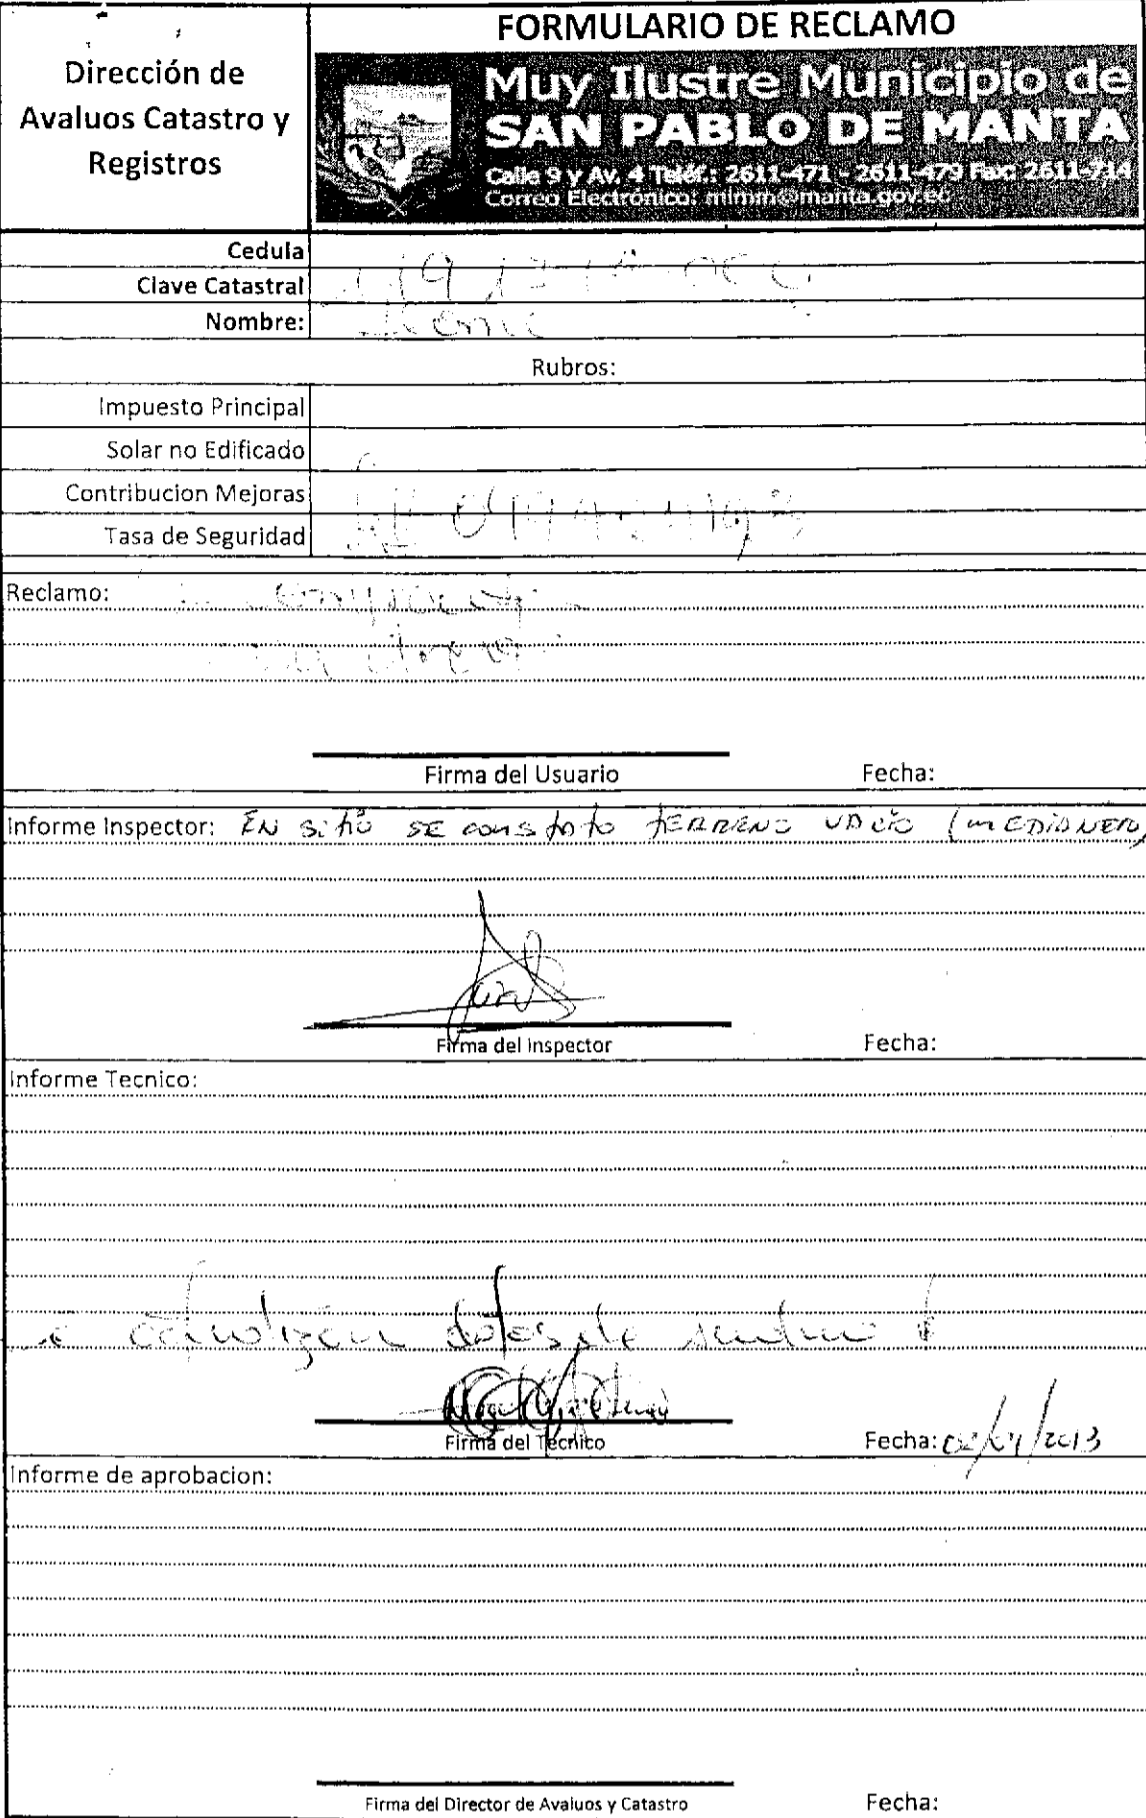 FORMULARIO DE RECLAMO
Dirección de
Avaluos Catastro y
Registros
Muy Ilustre Municipio de
SAN PABLO DE MANTA
Calle 9 y Av. 4 Teléf.: 2611-471 - 2611-479 Fax: 2611-714
Correo Electrónico: mimm@manta.gov.ec
Cedula
Clave Catastral
Nombre:
Rubros:
Impuesto Principal
Solar no Edificado
Contribucion Mejoras
Tasa de Seguridad
Reclamo:
Firma del Usuario Fecha:
Informe Inspector: EN sitio SE constato TERRENO VACIO (MEDIANERO)
Firma del Inspector Fecha:
Informe Tecnico:
datos de
Firma del Tecnico Fecha: 02/04/2013
Informe de aprobacion:
Firma del Director de Avaluos y Catastro Fecha: